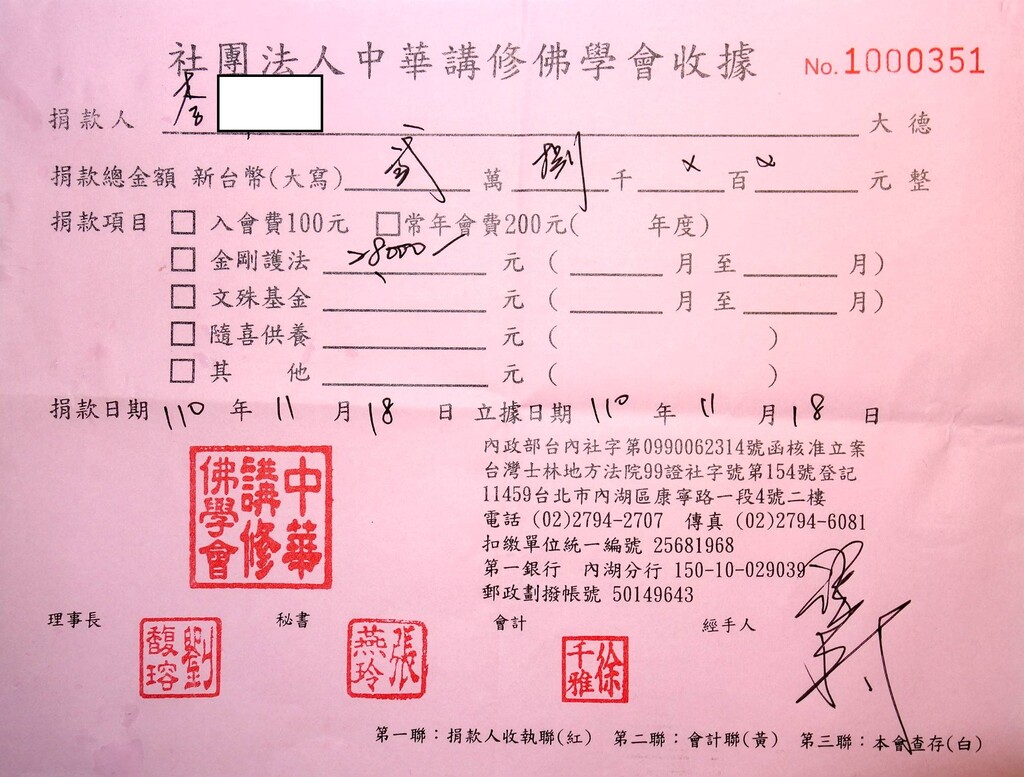 社團法人中華講修佛學會收據 No.1000351
捐款人 詹 大德
捐款總金額 新台幣(大寫) 貳 萬 捌 千 × 百 × 元整
捐款項目 □ 入會費100元 □常年會費200元( 年度)
□ 金剛護法 28000 元 ( 月 至 月)
□ 文殊基金 元 ( 月 至 月)
□ 隨喜供養 元 ( )
□ 其 他 元 ( )
捐款日期 110 年 11 月 18 日 立據日期 110 年 11 月 18 日
中華講修佛學會
內政部台內社字第0990062314號函核准立案
台灣士林地方法院99證社字號第154號登記
11459台北市內湖區康寧路一段4號二樓
電話 (02)2794-2707 傳真 (02)2794-6081
扣繳單位統一編號 25681968
第一銀行 內湖分行 150-10-029039
郵政劃撥帳號 50149643
理事長 秘書 會計 經手人
劉馥瑢 張燕玲 徐千雅
第一聯：捐款人收執聯(紅) 第二聯：會計聯(黃) 第三聯：本會查存(白)